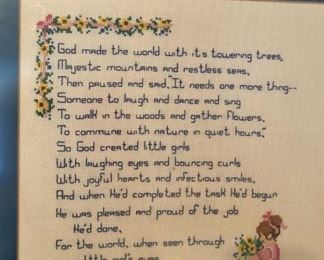 God made the world with its towering trees,
Majestic mountains and restless seas,
Then paused and said, "It needs one more thing--
Someone to laugh and dance and sing
To walk in the woods and gather flowers,
To commune with nature in quiet hours."
So God created little girls
With laughing eyes and bouncing curls
With joyful hearts and infectious smiles,
And when He'd completed the task He'd begun
He was pleased and proud of the job
He'd done,
For the world, when seen through
little girl's eyes